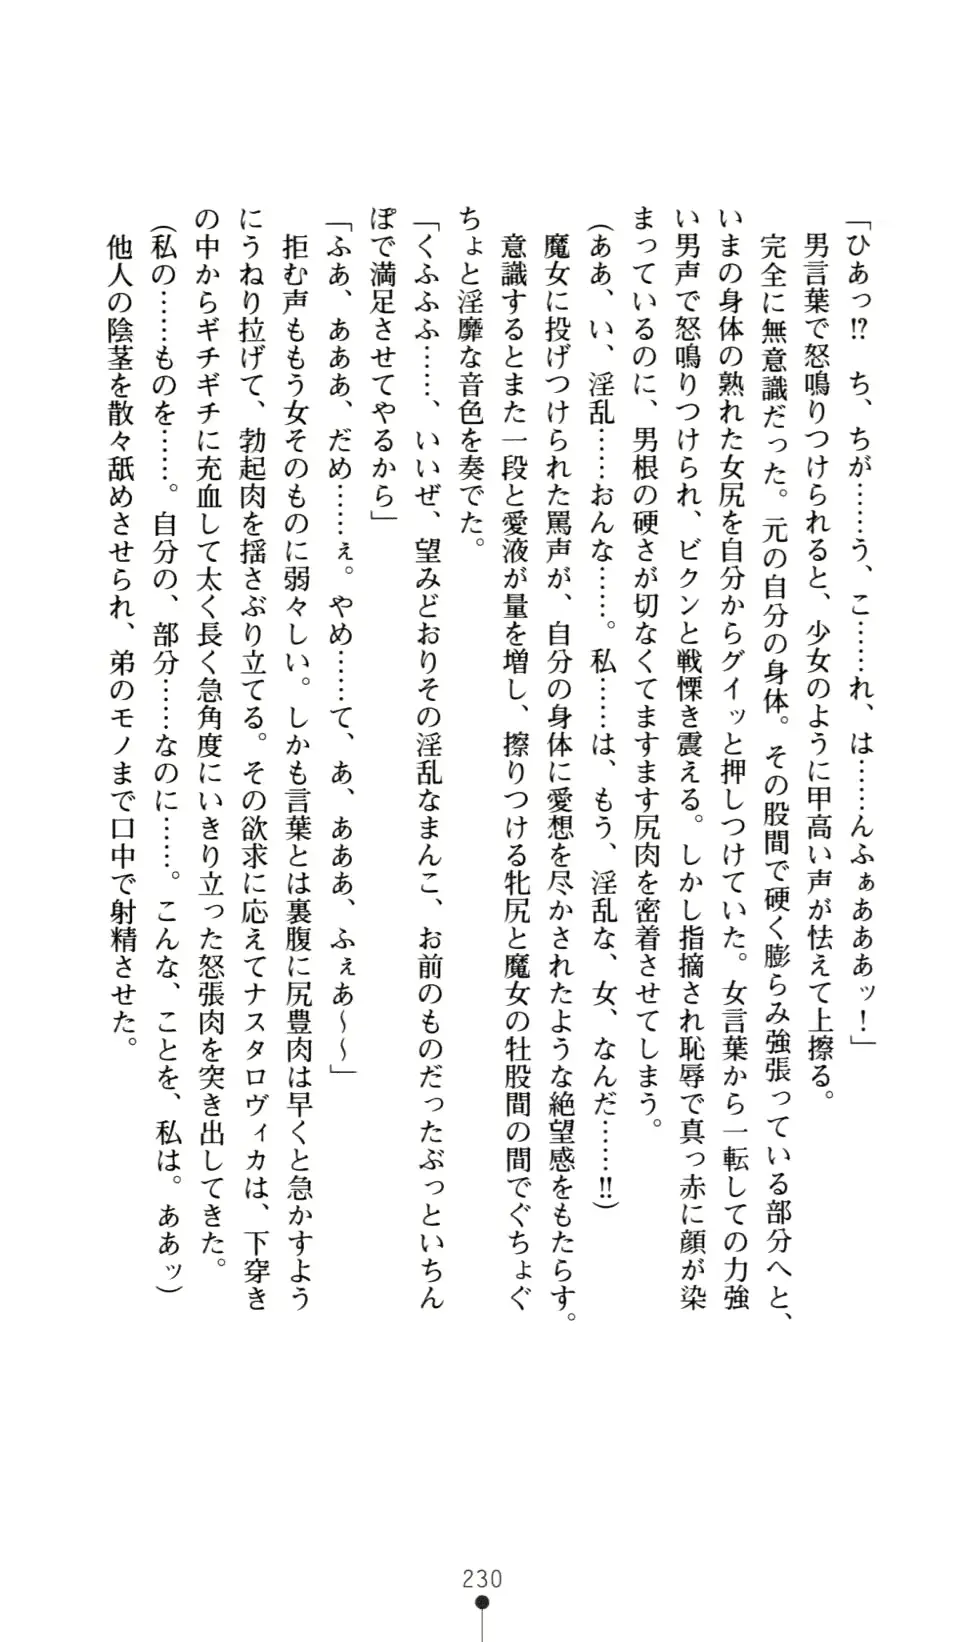 「ひあっ!?　ち、ちが……う、こ……れ、は……んふぁあああッ！」
男言葉で怒鳴りつけられると、少女のように甲高い声が怯えて上擦る。
完全に無意識だった。元の自分の身体。その股間で硬く膨らみ強張っている部分へと、
いまの身体の熟れた女尻を自分からグイッと押しつけていた。女言葉から一転しての力強
い男声で怒鳴りつけられ、ビクンと戦慄き震える。しかし指摘され恥辱で真っ赤に顔が染
まっているのに、男根の硬さが切なくてますます尻肉を密着させてしまう。
（ああ、い、淫乱……おんな……。私……は、もう、淫乱な、女、なんだ……!!）
魔女に投げつけられた罵声が、自分の身体に愛想を尽かされたような絶望感をもたらす。
意識するとまた一段と愛液が量を増し、擦りつける牝尻と魔女の牡股間の間でぐちょぐ
ちょと淫靡な音色を奏でた。
「くふふふ……、いいぜ、望みどおりその淫乱なまんこ、お前のものだったぶっといちん
ぽで満足させてやるから」
「ふぁ、あああ、だめ……ぇ。やめ……て、あ、あああ、ふぇあ～～」
拒む声ももう女そのものに弱々しい。しかも言葉とは裏腹に尻豊肉は早くと急かすよう
にうねり拉げて、勃起肉を揺さぶり立てる。その欲求に応えてナスタロヴィカは、下穿き
の中からギチギチに充血して太く長く急角度にいきり立った怒張肉を突き出してきた。
（私の……ものを……。自分の、部分……なのに……。こんな、ことを、私は。ああッ）
他人の陰茎を散々舐めさせられ、弟のモノまで口中で射精させた。
230